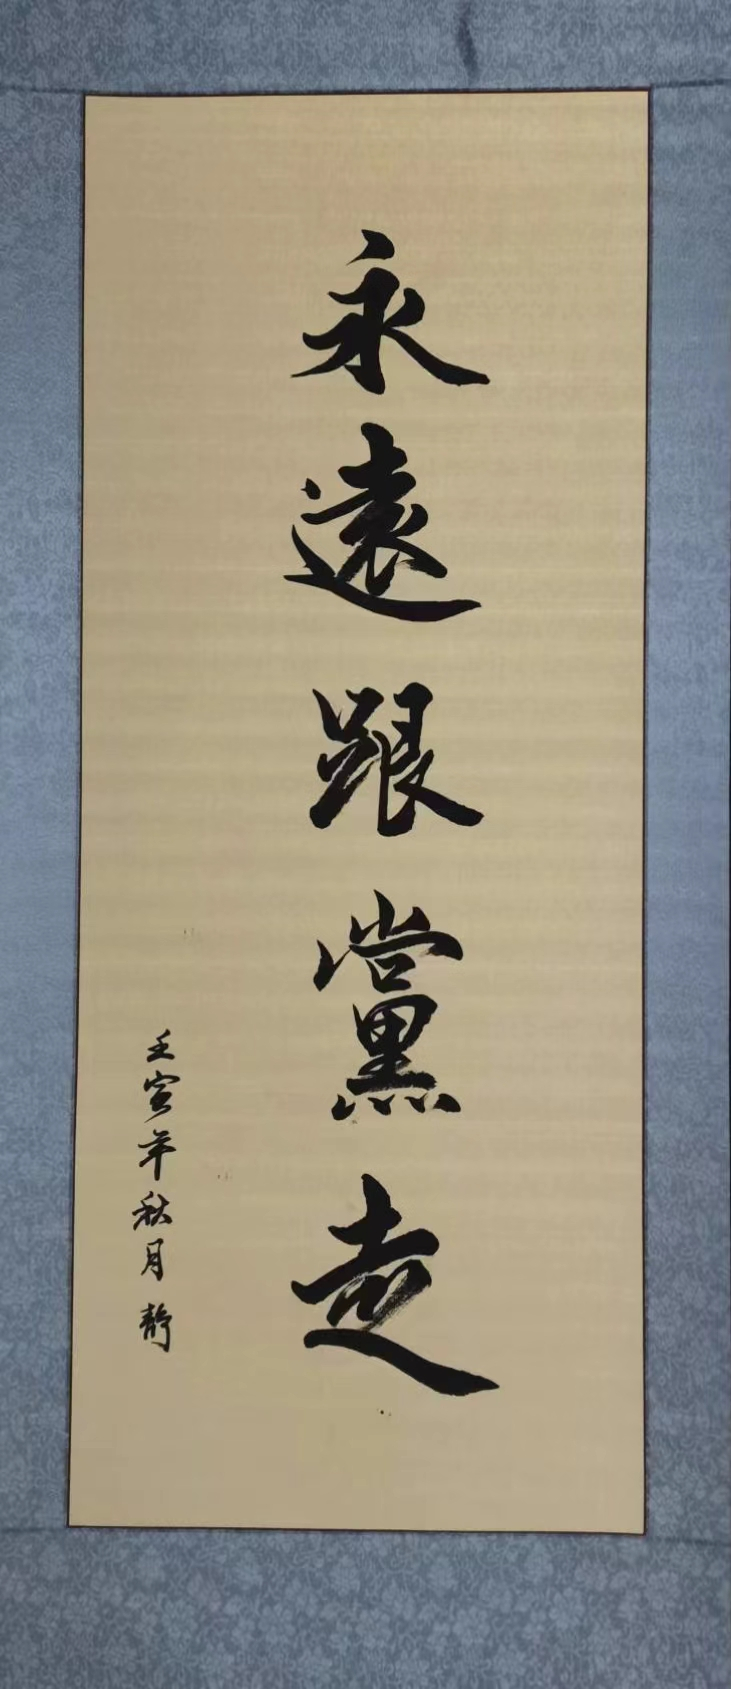 永遠跟黨走
壬寅年秋月 靜